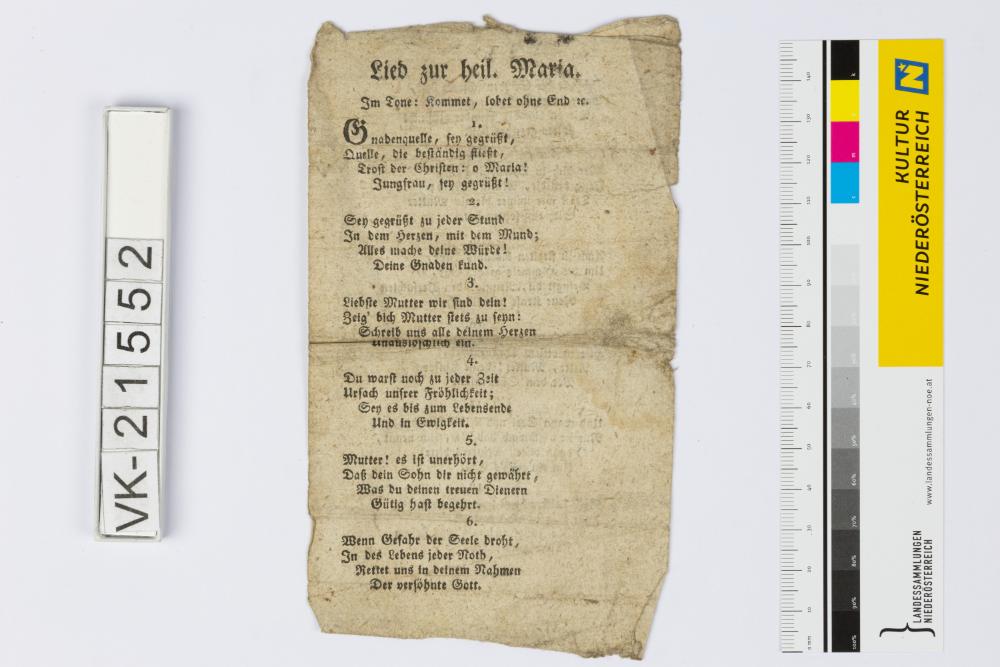 Lied zur heil. Maria.
Im Tone: Kommet, lobet ohne End ꝛc.
1.
Gnadenquelle, sey gegrüßt,
Quelle, die beständig fließt,
Trost der Christen: o Maria!
Jungfrau, sey gegrüßt!
2.
Sey gegrüßt zu jeder Stund
In dem Herzen, mit dem Mund;
Alles mache deine Würde!
Deine Gnaden kund.
3.
Liebste Mutter wir sind dein!
Zeig' dich Mutter stets zu seyn:
Schreib uns alle deinem Herzen
Unauslöschlich ein.
4.
Du warst noch zu jeder Zeit
Ursach unsrer Fröhlichkeit;
Sey es bis zum Lebensende
Und in Ewigkeit.
5.
Mutter! es ist unerhört,
Daß dein Sohn dir nicht gewährt,
Was du deinen treuen Dienern
Gütig hast begehrt.
6.
Wenn Gefahr der Seele droht,
In des Lebens jeder Noth,
Rettet uns in deinem Nahmen
Der versöhnte Gott.
VK-21552
KULTUR
NIEDERÖSTERREICH
www.landessammlungen-noe.at
LANDESSAMMLUNGEN
NIEDERÖSTERREICH